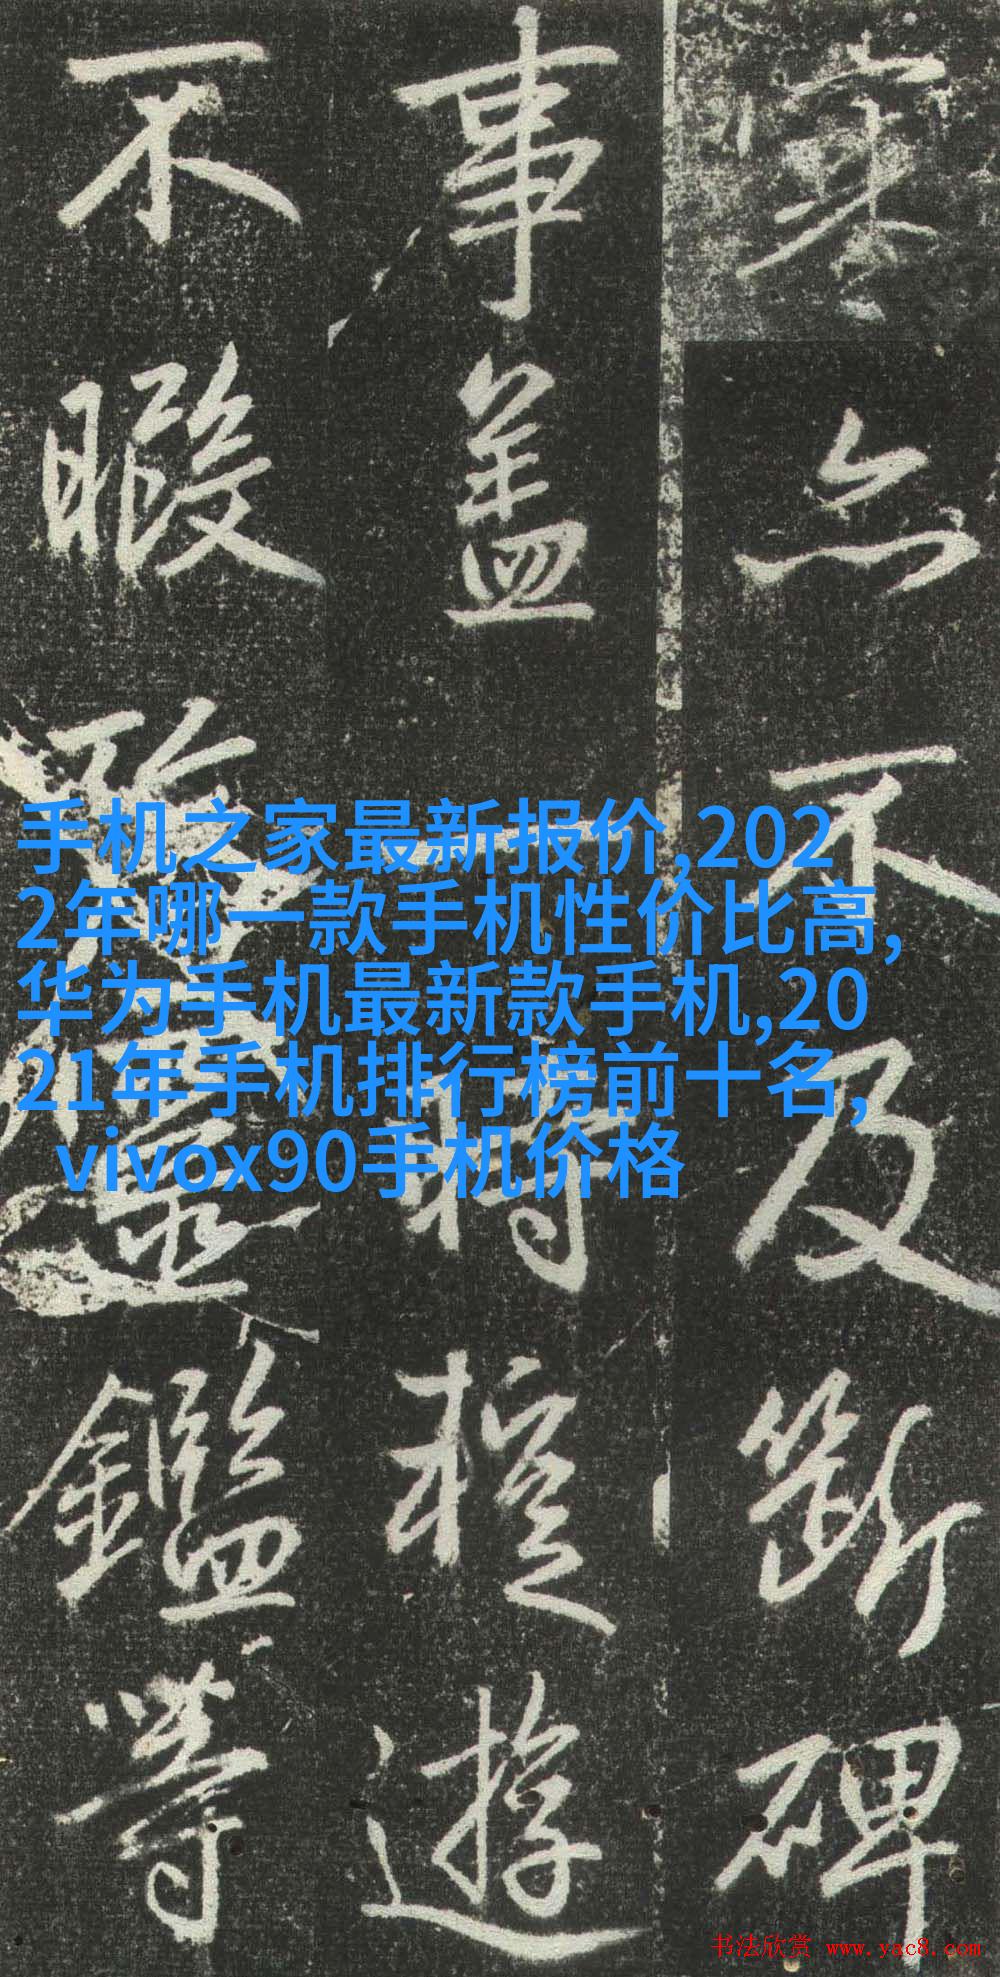 亦不及斷碑
事盖
遊
不暇
鑑等
手机之家最新报价,202
2年哪一款手机性价比高,
华为手机最新款手机,20
21年手机排行榜前十名,
vivox90手机价格
书法欣赏 www.yac8.com